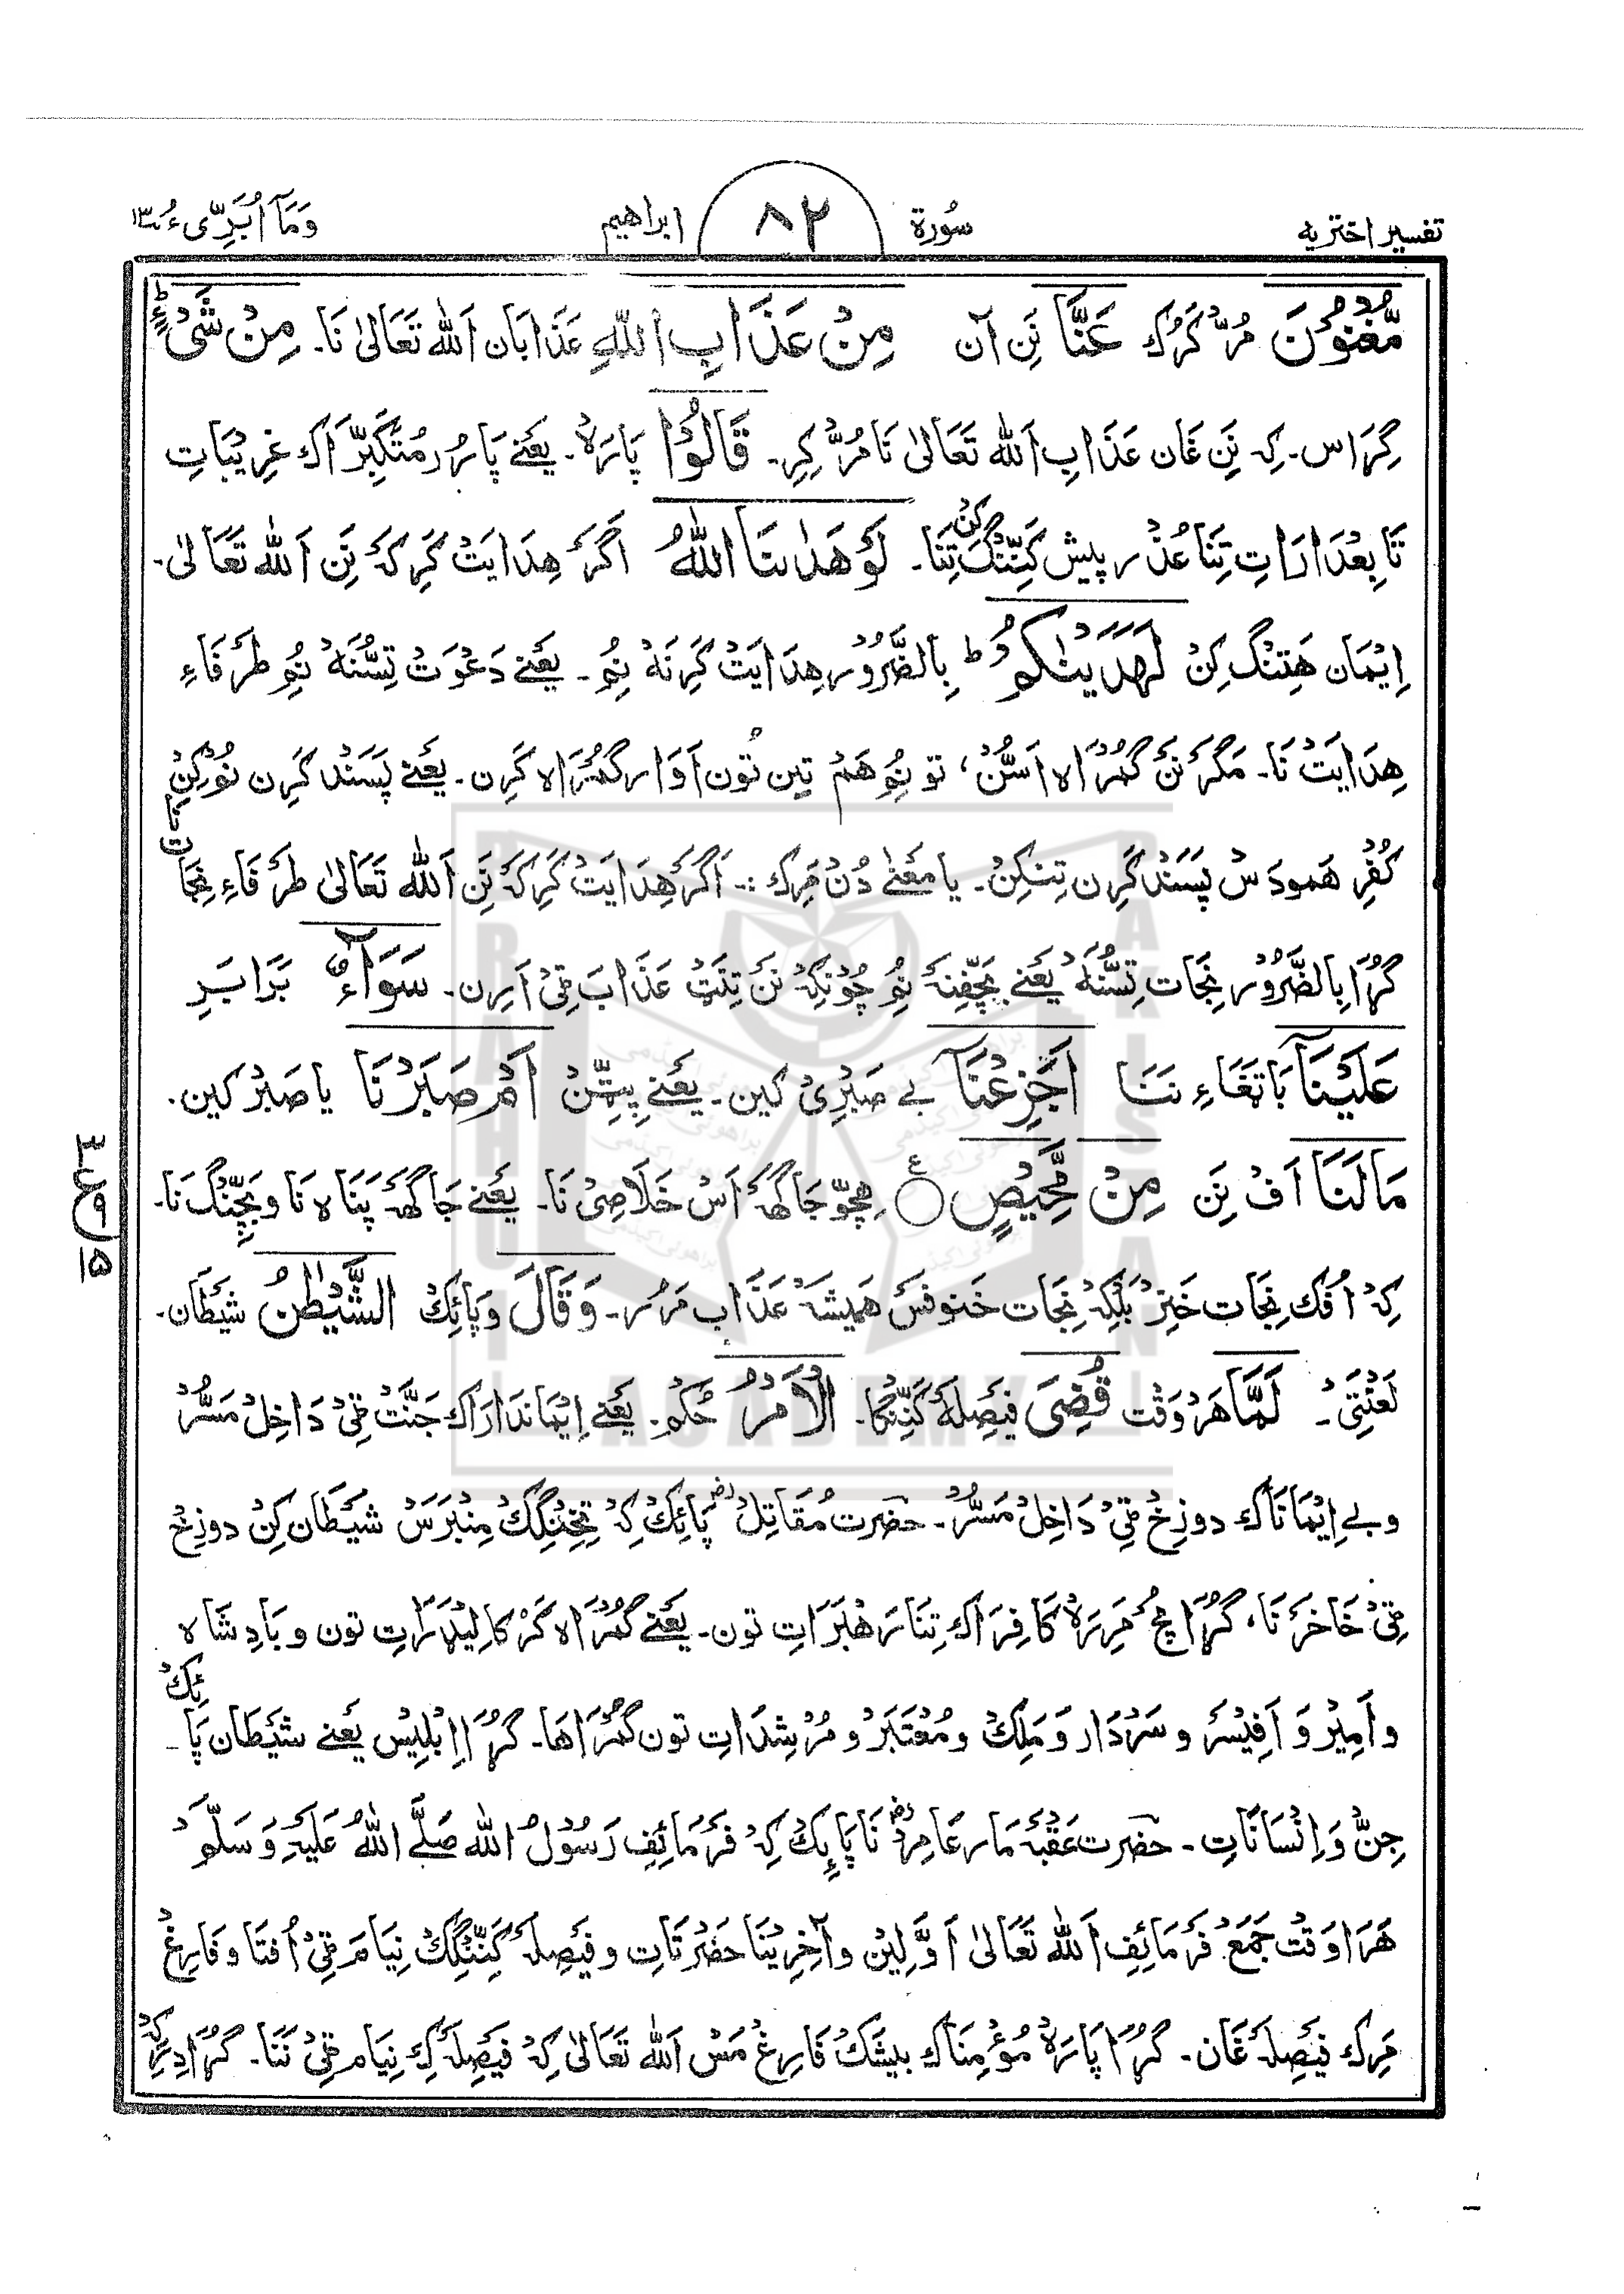 تفسیر اختریه سُورة ۸۲ ابراهیم وَمَآ اُبَرِّیءُ ۱۳
مُّغْنُوْنَ مُرّ کَرُک عَنَّا نَن آن مِنْ عَذَابِ اللّٰهِ عَذَابان اَللّٰه تَعَالیٰ نَا۔ مِنْ شَیْءٍ ؕ
گِرَاس۔ کِہ نَن غَان عَذَابِ اَللّٰه تَعَالیٰ نَا مُرّ کِرِ۔ قَالُوْا پَارَہْ۔ یَعْنے پَارُر مُتَکَبِّرَاک غَرِیْبَاتِ
تَابِعْدَارَاتِ تِنَا عُذْر پیش کَنِّنْگ کِنْ تِنَا۔ لَوْهَدٰىنَا اللّٰهُ اگَرْ هِدَایَتْ کَرِکَہ نَن اَللّٰه تَعَالیٰ۔
اِیْمَان هَتِنْگ کِنْ لَهَدَيْنٰكُمْ ؕ بِالضَّرُوْر هِدَایَتْ کَرِنَہْ نُم۔ یَعْنے دَعْوَتْ تِسُّنَہْ نُم طَرَفَاءِ
هِدَایَتْ نَا۔ مَگَر نَنْ گُمْرَاہ اَسُّنْ، تو نُم هَمْ تِین تُون اَوَار گُمْرَاہ کَرِن۔ یَعْنے پَسَنْد کَرِن نُم کِنْ
کُفْرِ هَمودَسْ پَسَنْد کَرِن تِنکِنْ۔ یا مَعْنٰے دُنْ مَرِک :۔ اَگَرْ هِدَایَتْ کَرِکَہ نَن اَللّٰه تَعَالیٰ طَرَفَاءِ نِجَات نَا
گُڑَا بِالضَّرُوْر نِجَات تِسُّنَہْ یَعْنے بَچّفِنَہ نُم چُوْنکِہ نَن تِنَتْ عَذَابَ ٹِیْ اَرِن۔ سَوَآءٌ بَرَابَرِ
عَلَيْنَآ بَاتَغَاءِ نَنَا اَجَزِعْنَآ بے صَبْرِیْ کین۔ یَعْنے پِٹِّنْ اَمْ صَبَرْنَا یا صَبْر کین.
مَالَنَا اَفْ نَن مِنْ مَّحِيْصٍ ۝ ع هِچّو جَاگَهْ اَسْ خَلَاصِیْ نَا۔ یَعْنے جَاگَهْ پَنَاہ نَا و بَچِّنْگ نَا۔
کِہْ اُفْک نِجَات خَنِرْ بَلْکِہْ نِجَات خَنوفَسْ هَمِیْشَہْ عَذَاب مَرُر۔ وَقَالَ وَپَائِکْ الشَّيْطٰنُ شَیْطَان۔
لَعْنَتِیْ۔ لَمَّا هَرْوَقْت قُضِیَ فَیْصِلَہ کَنِّنگا۔ الْاَمْرُ حُکم۔ یَعْنے اِیْمَاندَارَاک جَنَّتْ ٹِیْ دَاخِلْ مَسُّرْ
وبے اِیْمَانَاک دوزِخْ ٹِیْ دَاخِلْ مَسُّرْ۔ حضرت مُقَاتِلْ رض پَائِکْ کِہْ تَخِنْگِکْ مِنْبَرَسْ شَیْطَان کِنْ دوزِخْ
ٹِیْ خَاخَرْ نَا، گُڑَا مُچْ مَرِرَہْ کَافِرَاک تِنَا رَهْبَرَاتِ تون۔ یَعْنے گُمْرَاہ کَرْکا لِیْڈَرَاتِ تون و بَادِشَاہ
و اَمِیْر وَ اَفِیْسَر و سَرْدَار وَ مَلِکْ و مُعْتَبَرْ و مُرْشِدَاتِ تون گُمْرَاهَا۔ گُڑَا اِبْلِیْس یَعْنے شَیْطَان پَائِکْ
جِنّ وَ اِنْسَانَاتِ۔ حضرت عَقَبَہ مَار عَامِرْ رض نَا پَائِکْ کِہْ فَرْمَائِف رَسُوْلُ اللّٰه صَلَّے اللّٰهُ عَلَیْہِ وَسَلَّمْ
هَرَا وَقْتْ جَمَعْ فَرْمَائِفِ اَللّٰه تَعَالیٰ اَوَّلِیْن و آخِرِیْنَا حَضْرَتَاتِ و فَیْصِلَہ کَنِّنْگِکْ نِیَامَ ٹِیْ اُفْتَا و فَارِغْ
مَرِک فَیْصِلَہ غَان۔ گُڑَا پَارَہْ مُؤْمِنَاک بیشَکْ فَارِغْ مَسْ اَللّٰه تَعَالیٰ کِہْ فَیْصِلَہ کِہ نِیَام ٹِیْ نَنَا۔ گُڑَا دِیر کِہْ
BRAHUI ACADEMY PAKISTAN